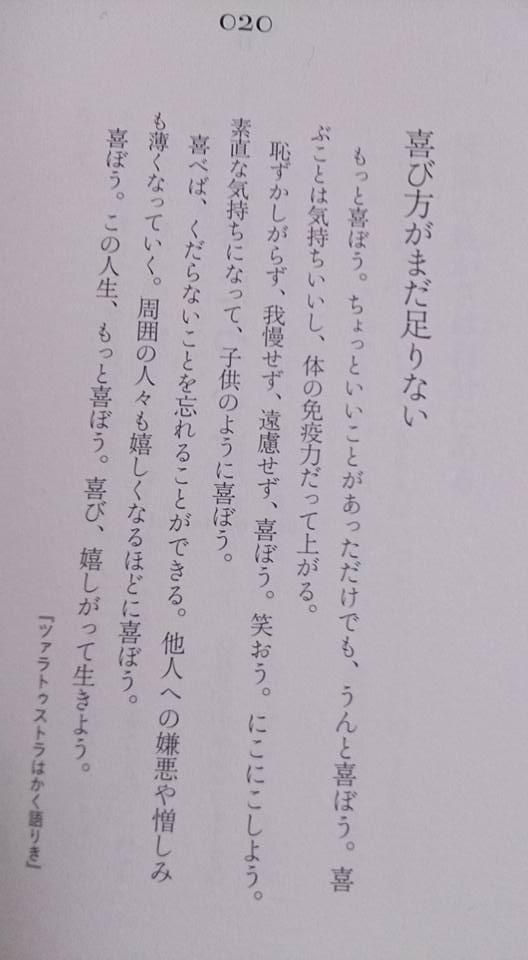 020
喜び方がまだ足りない
もっと喜ぼう。ちょっといいことがあっただけでも、うんと喜ぼう。喜
ぶことは気持ちいいし、体の免疫力だって上がる。
恥ずかしがらず、我慢せず、遠慮せず、喜ぼう。笑おう。にこにこしよう。
素直な気持ちになって、子供のように喜ぼう。
喜べば、くだらないことを忘れることができる。他人への嫌悪や憎しみ
も薄くなっていく。周囲の人々も嬉しくなるほどに喜ぼう。
喜ぼう。この人生、もっと喜ぼう。喜び、嬉しがって生きよう。
『ツァラトゥストラはかく語りき』